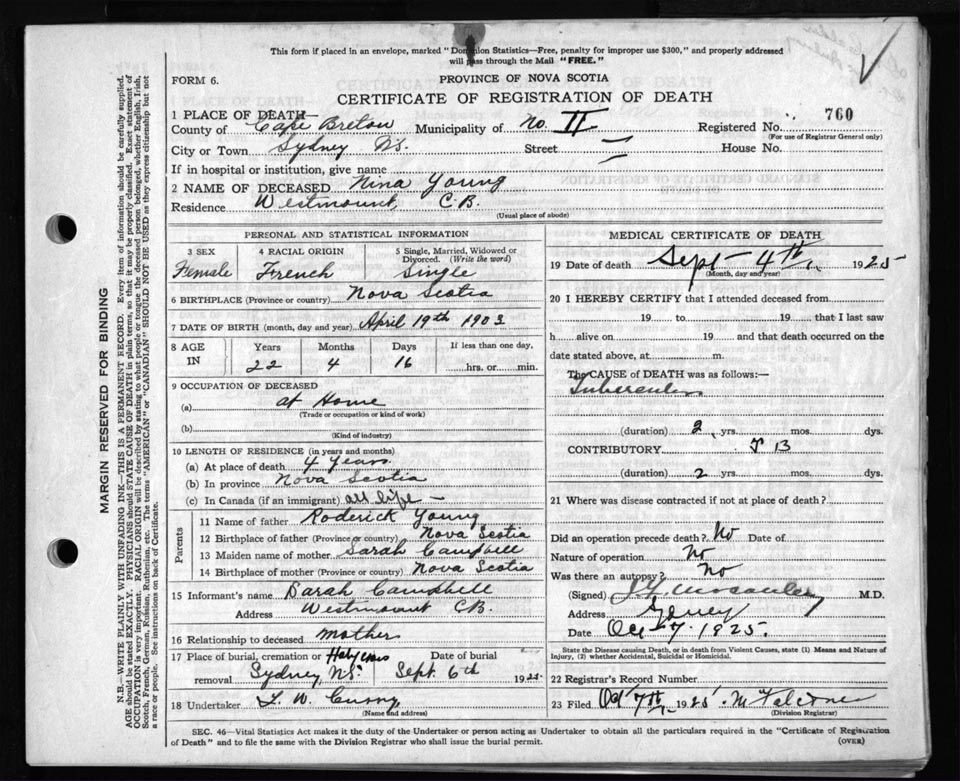 This form if placed in an envelope, marked "Dominion Statistics—Free, penalty for improper use $300," and properly addressed
will pass through the Mail "FREE."
FORM 6.
PROVINCE OF NOVA SCOTIA
CERTIFICATE OF REGISTRATION OF DEATH
1 PLACE OF DEATH—
County of Cape Breton Municipality of No. II Registered No. 760
(For use of Registrar General only)
City or Town Sydney N.S. Street House No.
If in hospital or institution, give name
2 NAME OF DECEASED Nina Young
Residence Westmount, C.B.
(Usual place of abode)
PERSONAL AND STATISTICAL INFORMATION
3 SEX 4 RACIAL ORIGIN 5 Single, Married, Widowed or
Divorced. (Write the word)
Female French Single
6 BIRTHPLACE (Province or country) Nova Scotia
7 DATE OF BIRTH (month, day and year) April 19th 1903
8 AGE IN Years Months Days If less than one day,
22 4 16 hrs. or min.
9 OCCUPATION OF DECEASED
(a) at Home
(Trade or occupation or kind of work)
(b)
(Kind of industry)
10 LENGTH OF RESIDENCE (in years and months)
(a) At place of death 4 years
(b) In province Nova Scotia
(c) In Canada (if an immigrant) all life —
Parents
11 Name of father Roderick Young
12 Birthplace of father (Province or country) Nova Scotia
13 Maiden name of mother Sarah Campbell
14 Birthplace of mother (Province or country) Nova Scotia
15 Informant's name Sarah Campbell
Address Westmount CB.
16 Relationship to deceased mother
17 Place of burial, cremation or Holy Cross Date of burial
removal Sydney, N.S. Sept. 6th 1925
18 Undertaker L. W. Curry
(Name and address)
MEDICAL CERTIFICATE OF DEATH
19 Date of death Sept 4th 1925
(Month, day and year)
20 I HEREBY CERTIFY that I attended deceased from
19 to 19 that I last saw
h alive on 19 and that death occurred on the
date stated above, at m.
The CAUSE of DEATH was as follows:—
(duration) 2 yrs. mos. dys.
CONTRIBUTORY T B
(duration) 2 yrs. mos. dys.
21 Where was disease contracted if not at place of death?
Did an operation precede death? No Date of
Nature of operation No
Was there an autopsy? No
(Signed) M.D.
Address Sydney
Date Oct 7. 1925.
State the Disease causing Death, or in death from Violent Causes, state (1) Means and Nature of
Injury, (2) whether Accidental, Suicidal or Homicidal.
22 Registrar's Record Number
23 Filed Oct 7th 1925
(Division Registrar)
SEC. 46—Vital Statistics Act makes it the duty of the Undertaker or person acting as Undertaker to obtain all the particulars required in the "Certificate of Registration
of Death" and to file the same with the Division Registrar who shall issue the burial permit.
(OVER)
MARGIN RESERVED FOR BINDING
N.B.—WRITE PLAINLY WITH UNFADING INK—THIS IS A PERMANENT RECORD. Every item of information should be carefully supplied.
AGE should be stated EXACTLY. PHYSICIANS should STATE CAUSE OF DEATH in plain terms, so that it may be properly classified. Exact statement of
OCCUPATION is very important. RACIAL ORIGIN will be described by stating to what people or tongue the deceased person belonged, whether English, Irish,
Scotch, French, German, Russian, Ruthenian, etc. The terms "AMERICAN" or "CANADIAN" SHOULD NOT BE USED as they express citizenship but not
a race or people. See instructions on back of Certificate.